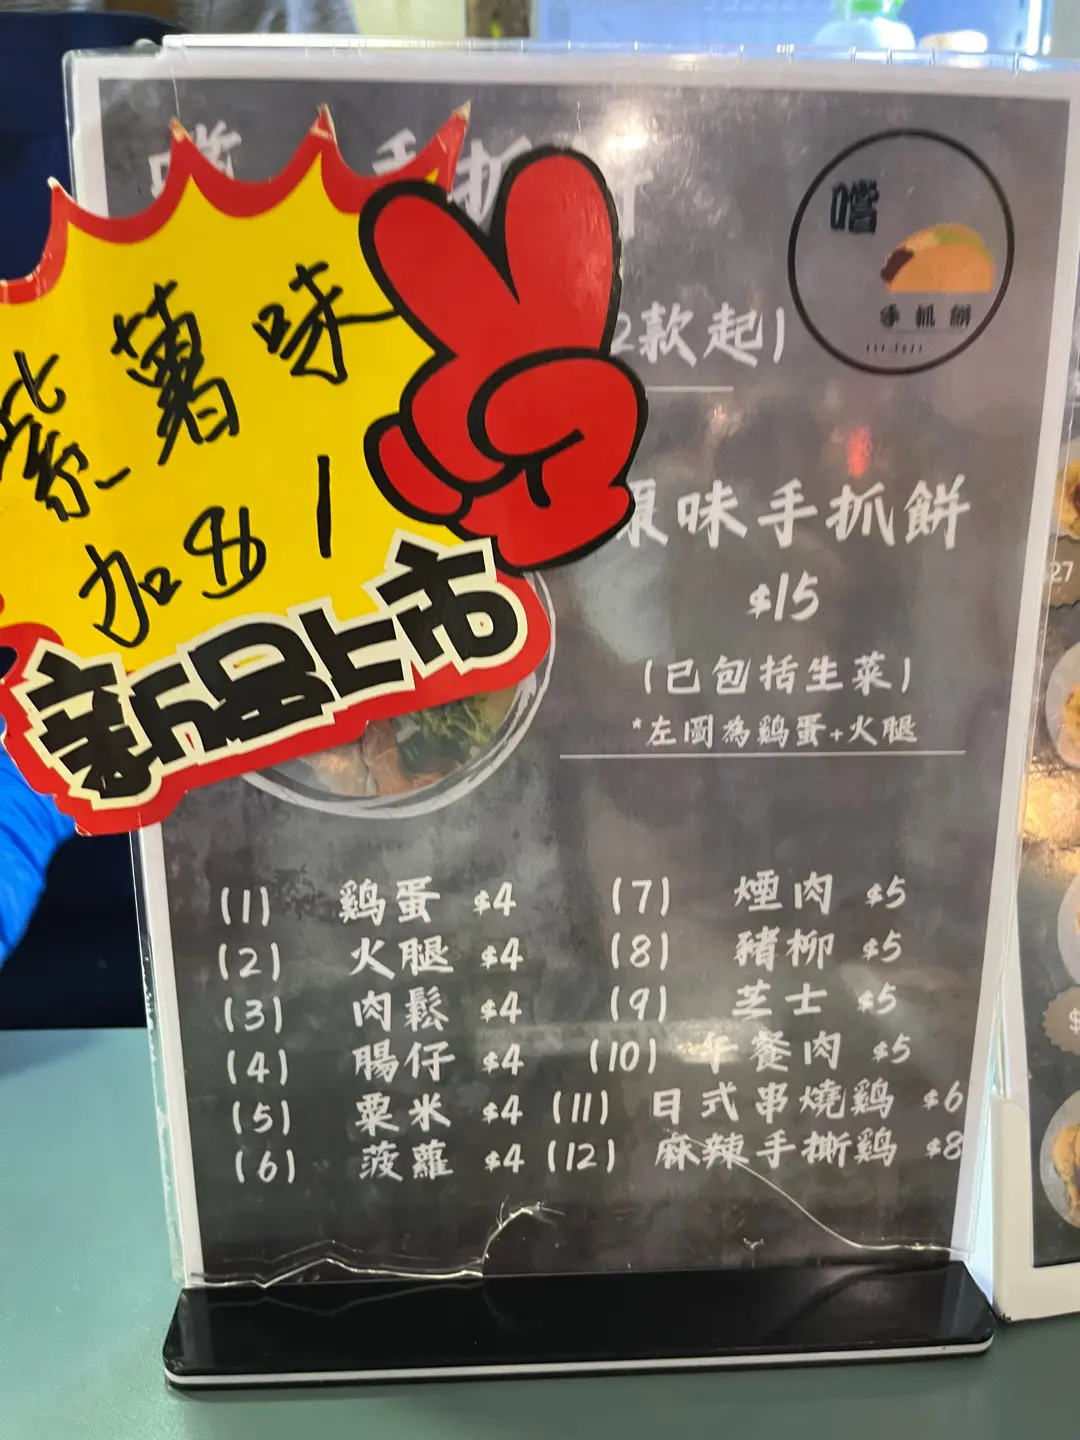 嚐
手抓餅
紫薯味
加 $1
新品上市
2款起)
原味手抓餅
$15
(已包括生菜)
*左圖為鷄蛋+火腿
(1) 鷄蛋 $4
(2) 火腿 $4
(3) 肉鬆 $4
(4) 腸仔 $4
(5) 粟米 $4
(6) 菠蘿 $4
(7) 煙肉 $5
(8) 豬柳 $5
(9) 芝士 $5
(10) 午餐肉 $5
(11) 日式串燒鷄 $6
(12) 麻辣手撕鷄 $8
$27